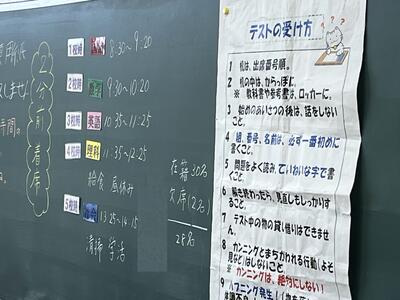 2分前着席
1校時 国語 8:30~9:20
2校時 数学 9:30~10:20
3校時 英語 10:35~11:25
4校時 理科 11:35~12:25
給食 昼休み
5校時 社会 13:25~14:15
清掃 学活
在籍 30名
欠席 (2名)
28名
テストの受け方
1 机は、出席番号順。
2 机の中は、からっぽに。
※ 教科書や参考書は、ロッカーに。
3 始めのあいさつの後は、話をしない
こと。
4 組、番号、名前は、必ず一番初め
に書くこと。
5 問題をよく読み、ていねいな字で書
くこと。
6 解き終わったら、見直しもしっかりす
ること。
7 テスト中の物の貸し借りはできませ
ん。
8 カンニングとまちがわれる行動(よそ
見など)はしないこと。
※ カンニングは、絶対にしない!
9 ハプニング発生!